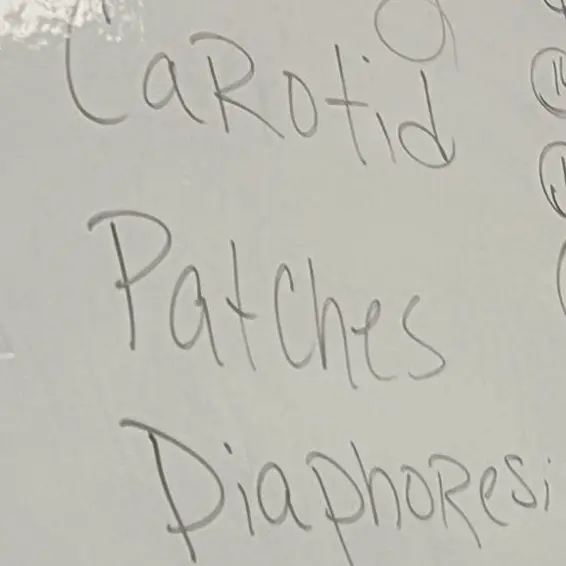 CaRotid
Patches
DiaphoResi